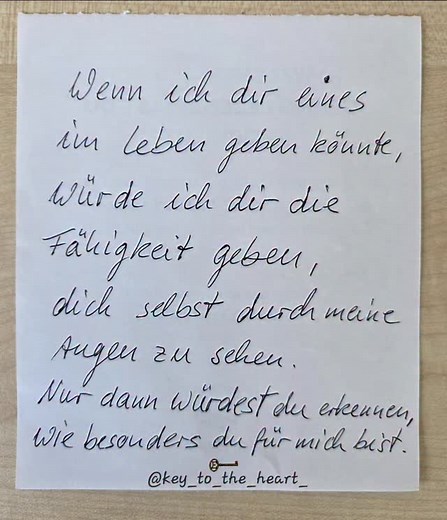 Wenn ich dir eines
im Leben geben könnte,
Würde ich dir die
Fähigkeit geben,
dich selbst durch meine
Augen zu sehen.
Nur dann würdest du erkennen,
Wie besonders du für mich bist.
@key_to_the_heart_